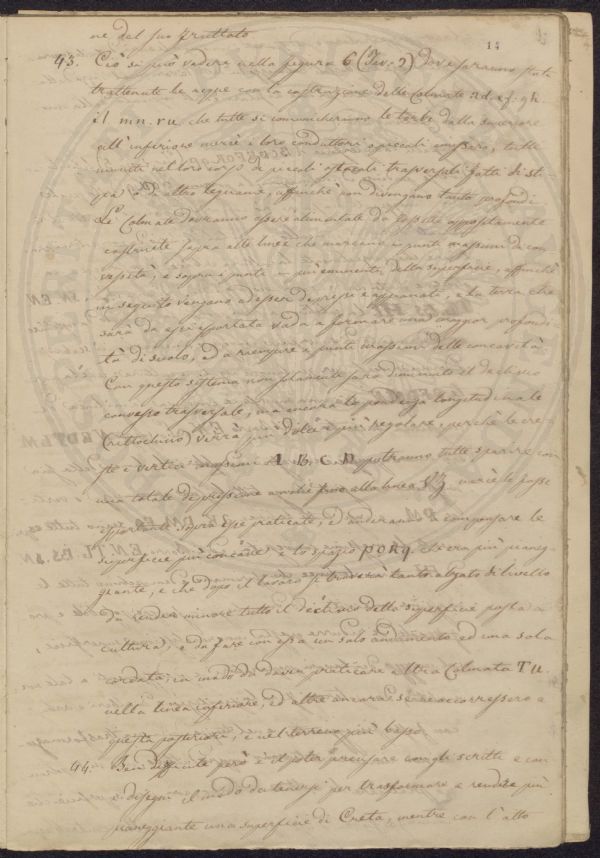 14
ne del suo fruttato
43. Ciò si può vedere nella figura 6 (Tav. 2) dove saranno state
trattenute le acque con la costruzione delle Colmate ad. ef. gh.
il mn. ru. che tutte si comunicheranno le torbe dalla superiore
all'inferiore mercè i loro conduttori o piccoli, tutti
muniti nel loro corpo di piccoli ostacoli trasversali fatti di sti-
pa, o di altro legname, affinchè non divengano tanto profondi
Le Colmate dovranno essere alimentate da fossette appositamente
costruite sopra alle linee che marcano i punti massimi di con
vessità, e sopra i punti i più eminenti della superficie, affinchè
in seguito vengano ad esser depressi e appianati, e la terra che
sarà da essi esportata vada a formare una maggior profondi
tà di suolo, ed a riempire i punti massimi delle concavità.
Con questo sistema non solamente sarà diminuito il declivio
convesso trasversale, ma ancora la pendenza longitudinale
(rittochino) verrà più dolce e più regolare, perchè le cre
ste e vertici massimi A. B. C. D. potranno tutte sparire con
una totale depressione anche fino alla linea mercè le fosse
sopra esse praticate, ed anderanno a compensare le
superficie più concave: lo spazio P O R q. ch'era più pianeg-
giante, e che dopo il lavoro si troverà tanto alzato di livello
da render minore tutto il declivio della superficie posta a
cultura, e da fare con essa un solo andamento ed una sola
cordata, in modo da dover praticare altra Colmata T U.
nella linea inferiore, ed altre ancora se ne occorressero a
questa posteriori, e nel terreno più basso.
44. Ben difficile però è il poter precisare con gli scritti e con
i disegni il modo da tenersi per trasformare e rendere più
pianeggiante una superficie di Creta, mentre con l'atto